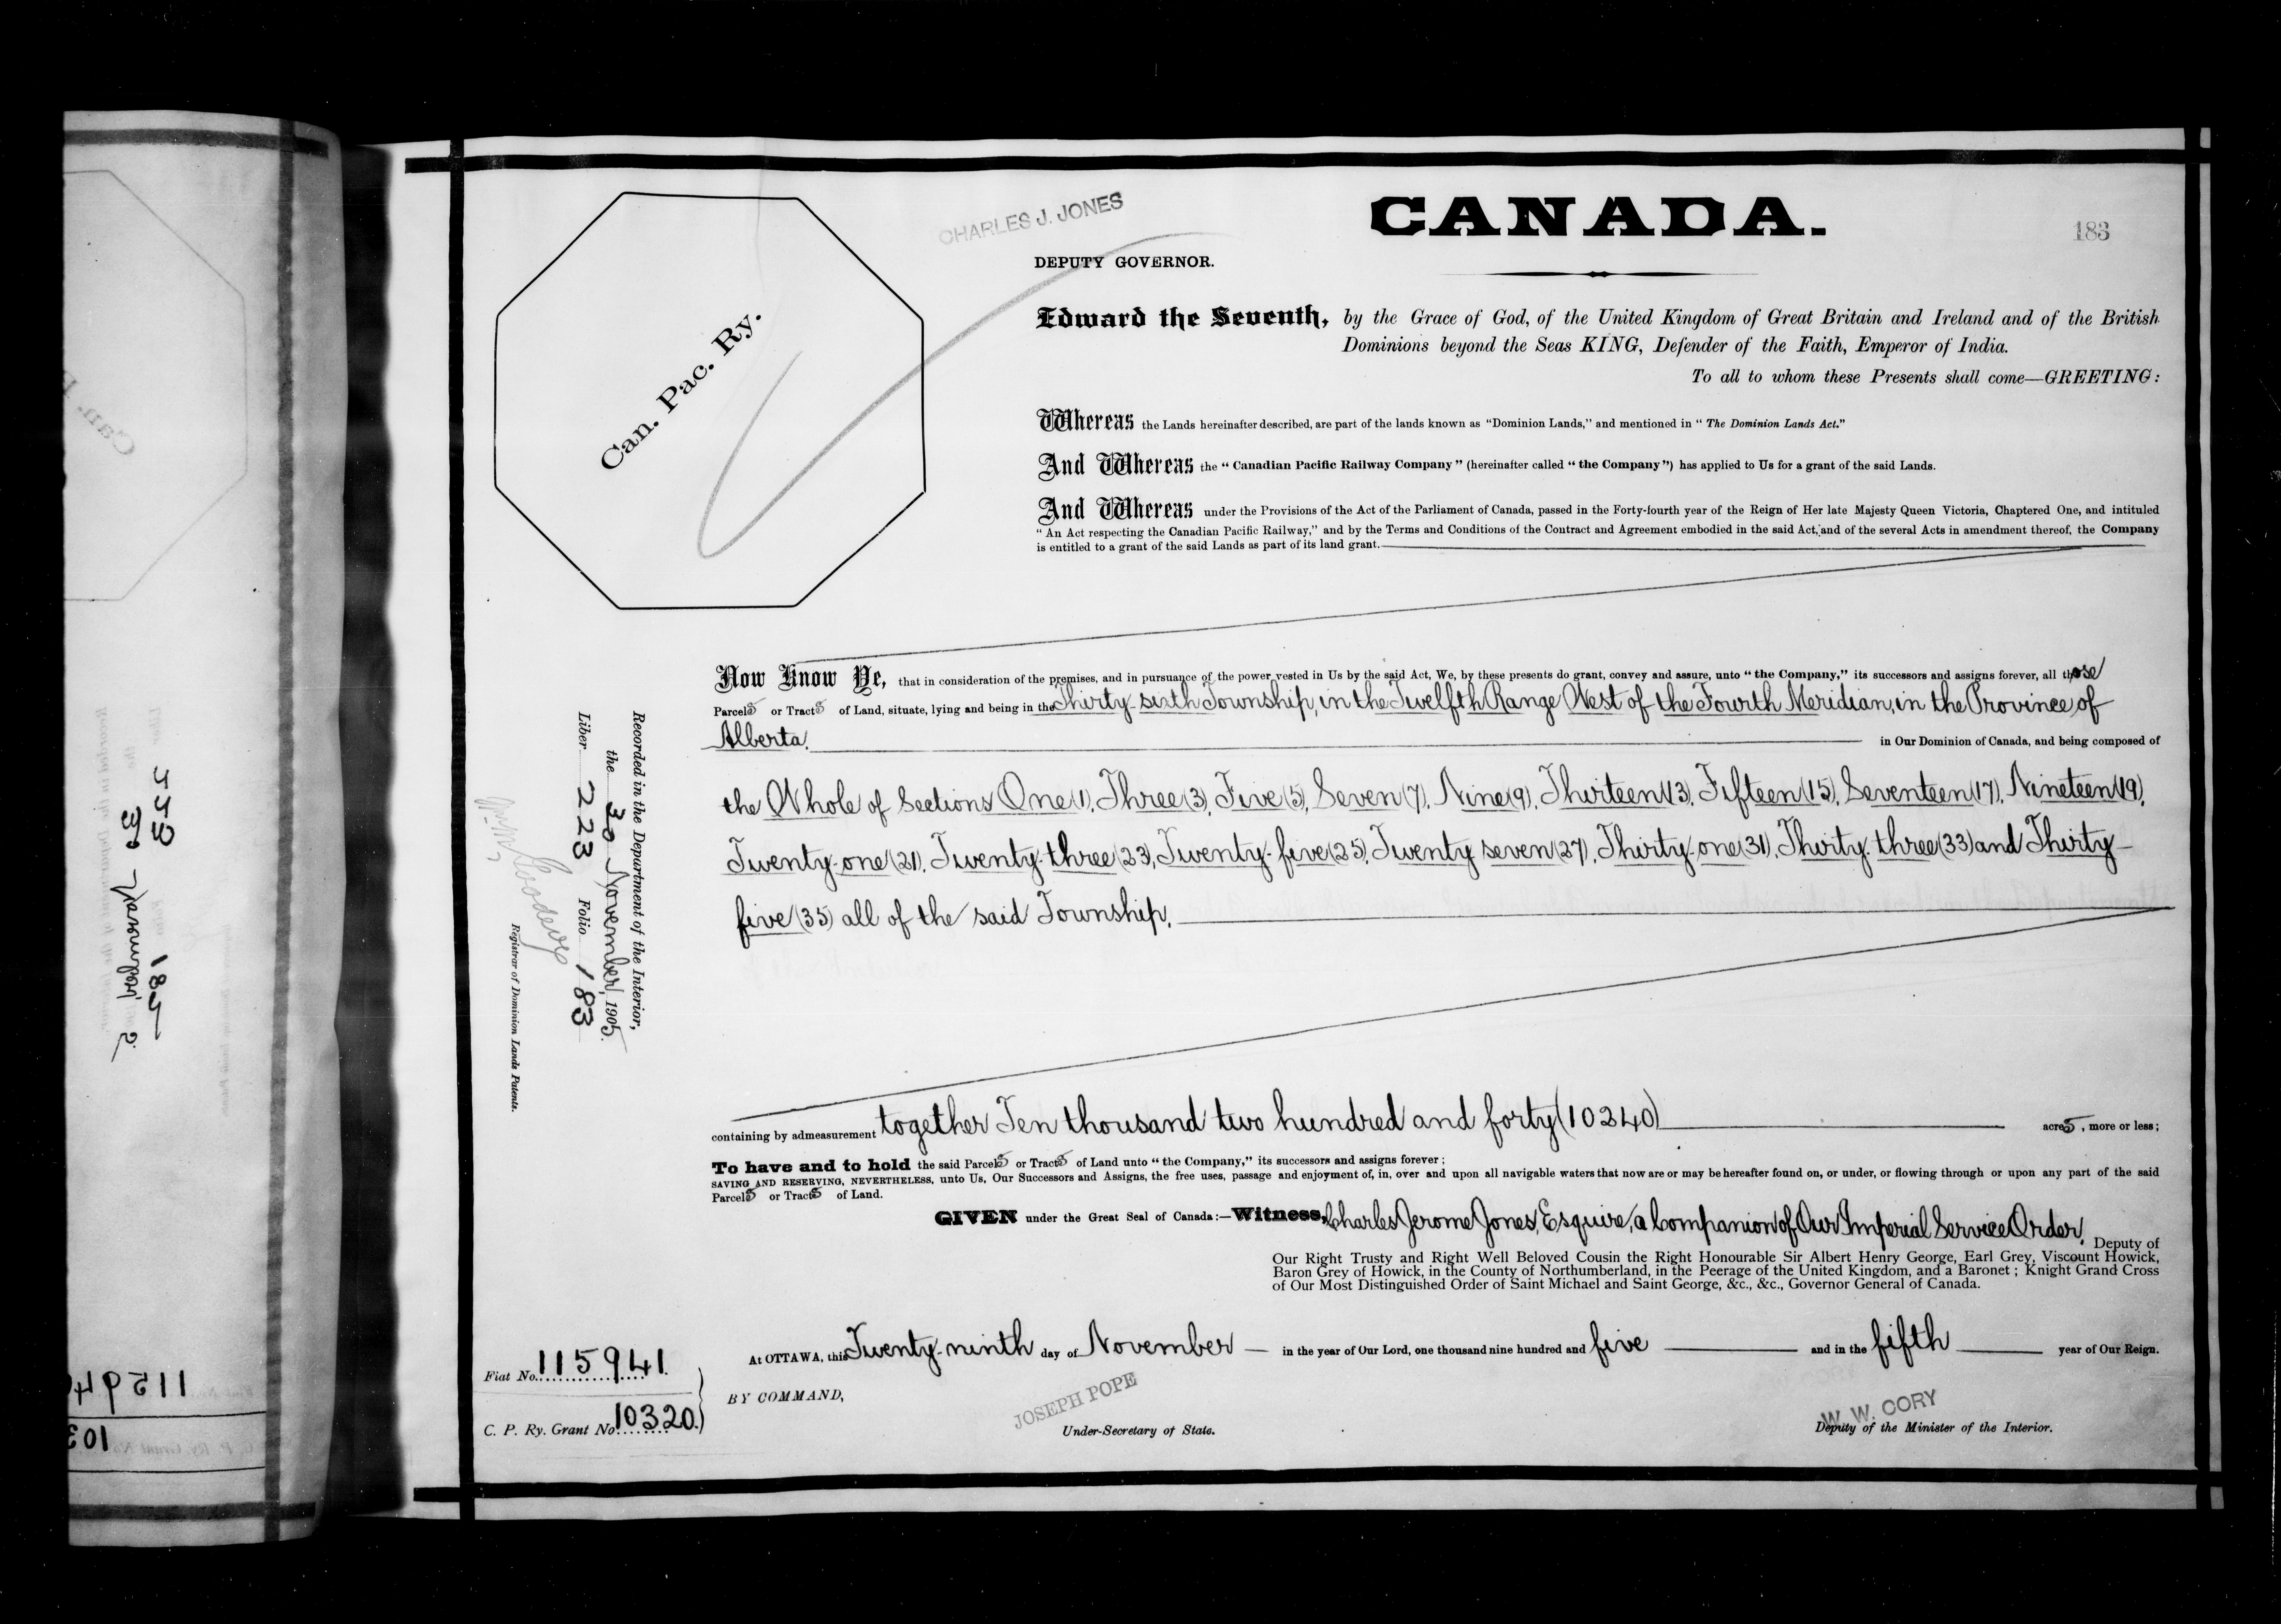 CHARLES J. JONES
CANADA.
183
DEPUTY GOVERNOR.
Can. Pac. Ry.
Edward the Seventh, by the Grace of God, of the United Kingdom of Great Britain and Ireland and of the British
Dominions beyond the Seas KING, Defender of the Faith, Emperor of India.
To all to whom these Presents shall come—GREETING:
Whereas the Lands hereinafter described, are part of the lands known as "Dominion Lands," and mentioned in "The Dominion Lands Act."
And Whereas the "Canadian Pacific Railway Company" (hereinafter called "the Company") has applied to Us for a grant of the said Lands.
And Whereas under the Provisions of the Act of the Parliament of Canada, passed in the Forty-fourth year of the Reign of Her late Majesty Queen Victoria, Chaptered One, and intituled
"An Act respecting the Canadian Pacific Railway," and by the Terms and Conditions of the Contract and Agreement embodied in the said Act, and of the several Acts in amendment thereof, the Company
is entitled to a grant of the said Lands as part of its land grant.
Now Know Ye, that in consideration of the premises, and in pursuance of the power vested in Us by the said Act, We, by these presents do grant, convey and assure, unto "the Company," its successors and assigns forever, all those
Parcels or Tracts of Land, situate, lying and being in the Thirty-sixth Township, in the Twelfth Range West of the Fourth Meridian, in the Province of
Alberta. in Our Dominion of Canada, and being composed of
the Whole of Sections One (1), Three (3), Five (5), Seven (7), Nine (9), Thirteen (13), Fifteen (15), Seventeen (17), Nineteen (19),
Twenty-one (21), Twenty-three (23), Twenty-five (25), Twenty seven (27), Thirty-one (31), Thirty-three (33) and Thirty-
five (35) all of the said Township.
containing by admeasurement together Ten thousand two hundred and forty (10240) acres, more or less;
To have and to hold the said Parcels or Tracts of Land unto "the Company," its successors and assigns forever;
SAVING AND RESERVING, NEVERTHELESS, unto Us, Our Successors and Assigns, the free uses, passage and enjoyment of, in, over and upon all navigable waters that now are or may be hereafter found on, or under, or flowing through or upon any part of the said
Parcels or Tracts of Land.
GIVEN under the Great Seal of Canada:—Witness, Charles Jerome Jones, Esquire, a Companion of Our Imperial Service Order, Deputy of
Our Right Trusty and Right Well Beloved Cousin the Right Honourable Sir Albert Henry George, Earl Grey, Viscount Howick,
Baron Grey of Howick, in the County of Northumberland, in the Peerage of the United Kingdom, and a Baronet; Knight Grand Cross
of Our Most Distinguished Order of Saint Michael and Saint George, &c., &c., Governor General of Canada.
At OTTAWA, this Twenty-ninth day of November in the year of Our Lord, one thousand nine hundred and five and in the fifth year of Our Reign.
BY COMMAND,
JOSEPH POPE
Under-Secretary of State.
W. W. CORY
Deputy of the Minister of the Interior.
Fiat No. 115941
C. P. Ry. Grant No. 10320.
Recorded in the Department of the Interior,
the 30 November, 1905.
Liber 223 Folio 183
Registrar of Dominion Lands Patents.